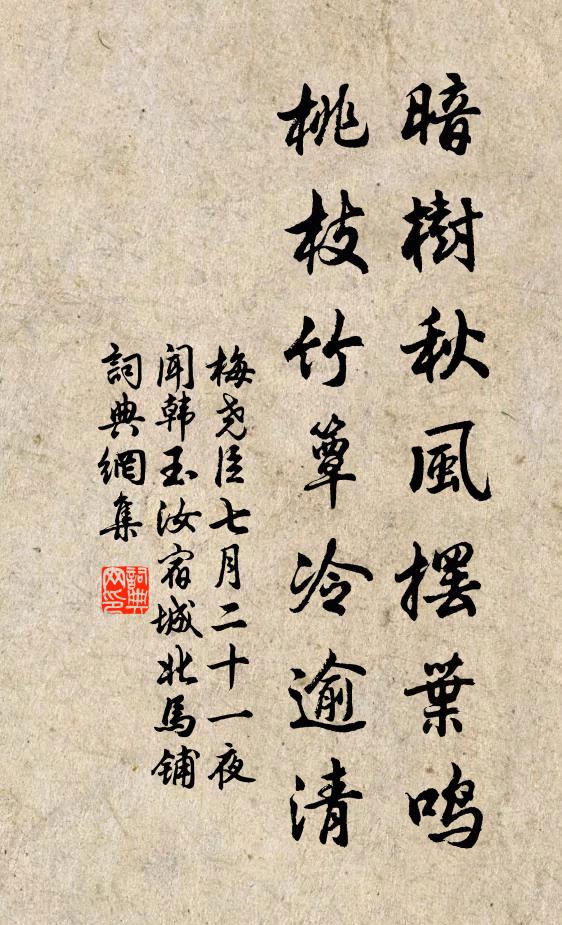 暗樹秋風摆葉鸣
桃枝竹簟冷逾清
梅尧臣七月二十一夜
闻韩玉汝宿城北馬铺
詞典網集
詞典
网印